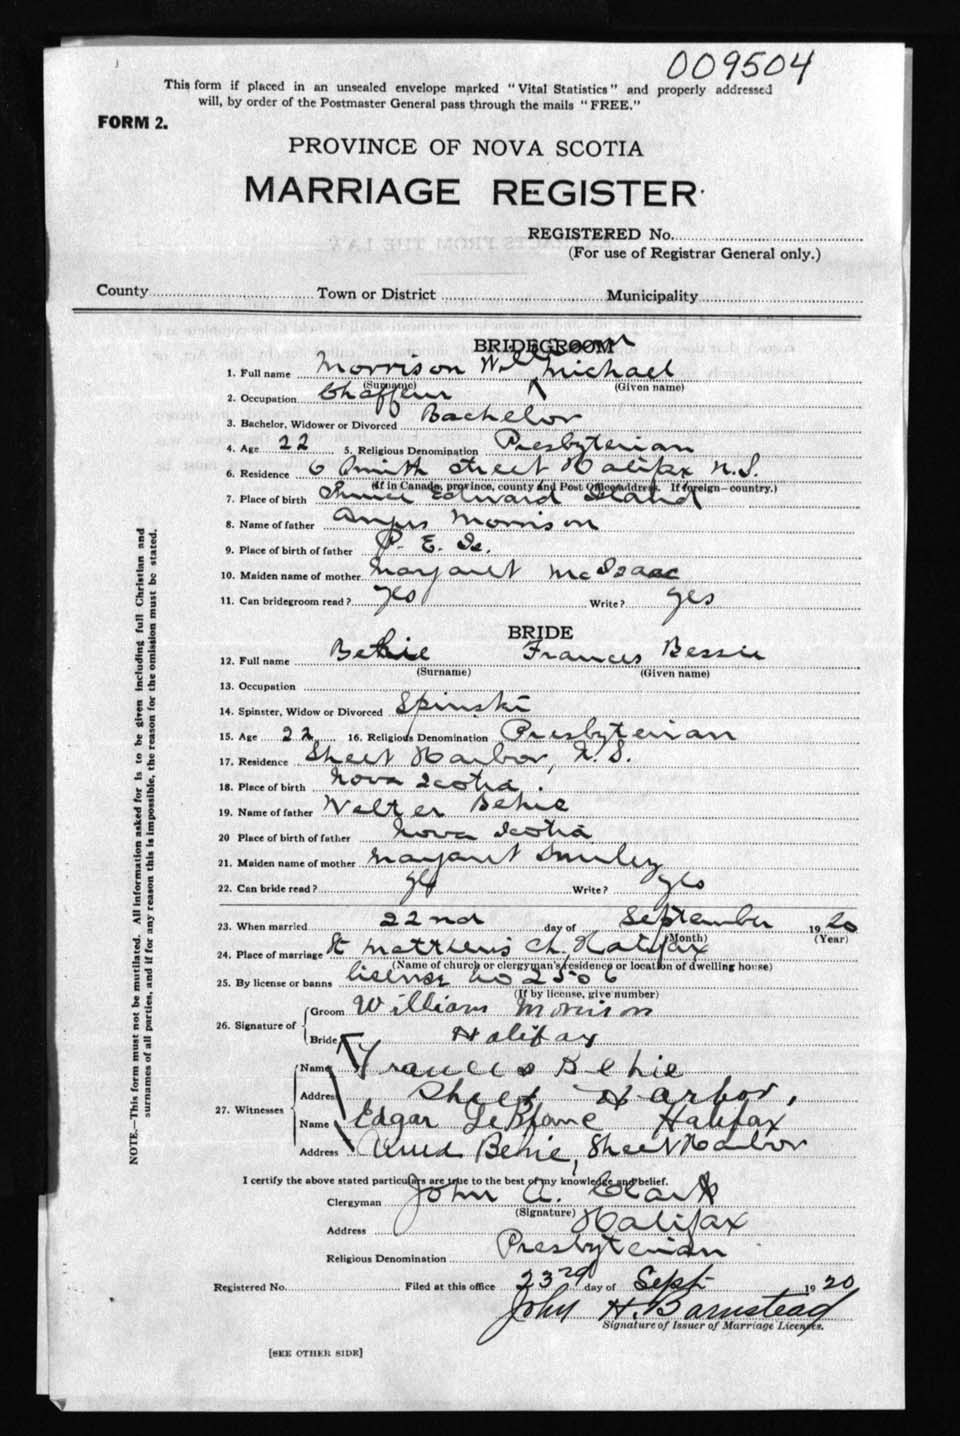 009504
This form if placed in an unsealed envelope marked "Vital Statistics" and properly addressed
will, by order of the Postmaster General pass through the mails "FREE."
FORM 2.
PROVINCE OF NOVA SCOTIA
MARRIAGE REGISTER
REGISTERED No.
(For use of Registrar General only.)
County Town or District Municipality
BRIDEGROOM
1. Full name Morrison William Michael
(Surname) (Given name)
2. Occupation Chaffeur
3. Bachelor, Widower or Divorced Bachelor
4. Age 22 5. Religious Denomination Presbyterian
6. Residence 6 Smith Street Halifax N.S.
(If in Canada, province, county and Post Office address. If foreign—country.)
7. Place of birth Prince Edward Island
8. Name of father Angus Morrison
9. Place of birth of father P. E. Is.
10. Maiden name of mother Margaret McIsaac
11. Can bridegroom read? yes Write? yes
BRIDE
12. Full name Behie Frances Bessie
(Surname) (Given name)
13. Occupation
14. Spinster, Widow or Divorced
15. Age 22 16. Religious Denomination Presbyterian
17. Residence Sheet Harbor, N.S.
18. Place of birth Nova Scotia.
19. Name of father Walter Behie
20 Place of birth of father Nova Scotia
21. Maiden name of mother Margaret Smiley
22. Can bride read? yes Write? yes
23. When married 22nd day of September 1920
(Month) (Year)
24. Place of marriage St Matthews Ch, Halifax
(Name of church or clergyman's residence or location of dwelling house)
25. By license or banns license no 2506
(If by license, give number)
26. Signature of Groom William Morrison
Bride Halifax
27. Witnesses Name Frances Behie
Address Sheet Harbor,
Name Edgar LeBlanc Halifax
Address Behie, Sheet Harbor
I certify the above stated particulars are true to the best of my knowledge and belief.
Clergyman John A. Clark
(Signature)
Address Halifax
Religious Denomination Presbyterian
Registered No. Filed at this office 23rd day of Sept 1920
John H. Barnstead
Signature of Issuer of Marriage Licenses.
[SEE OTHER SIDE]
NOTE.—This form must not be mutilated. All information asked for is to be given including full Christian and
surnames of all parties, and if for any reason this is impossible, the reason for the omission must be stated.